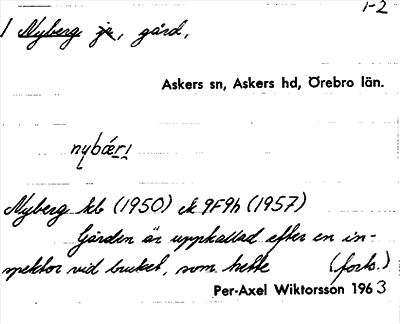 1-2
1 Nyberg ja, gård,
Askers sn, Askers hd, Örebro län.
nybærı
Nyberg kb (1950) ek 9F9h (1957)
Gården är uppkallad efter en in-
spektor vid bruket, som hette (forts.)
Per-Axel Wiktorsson 1963